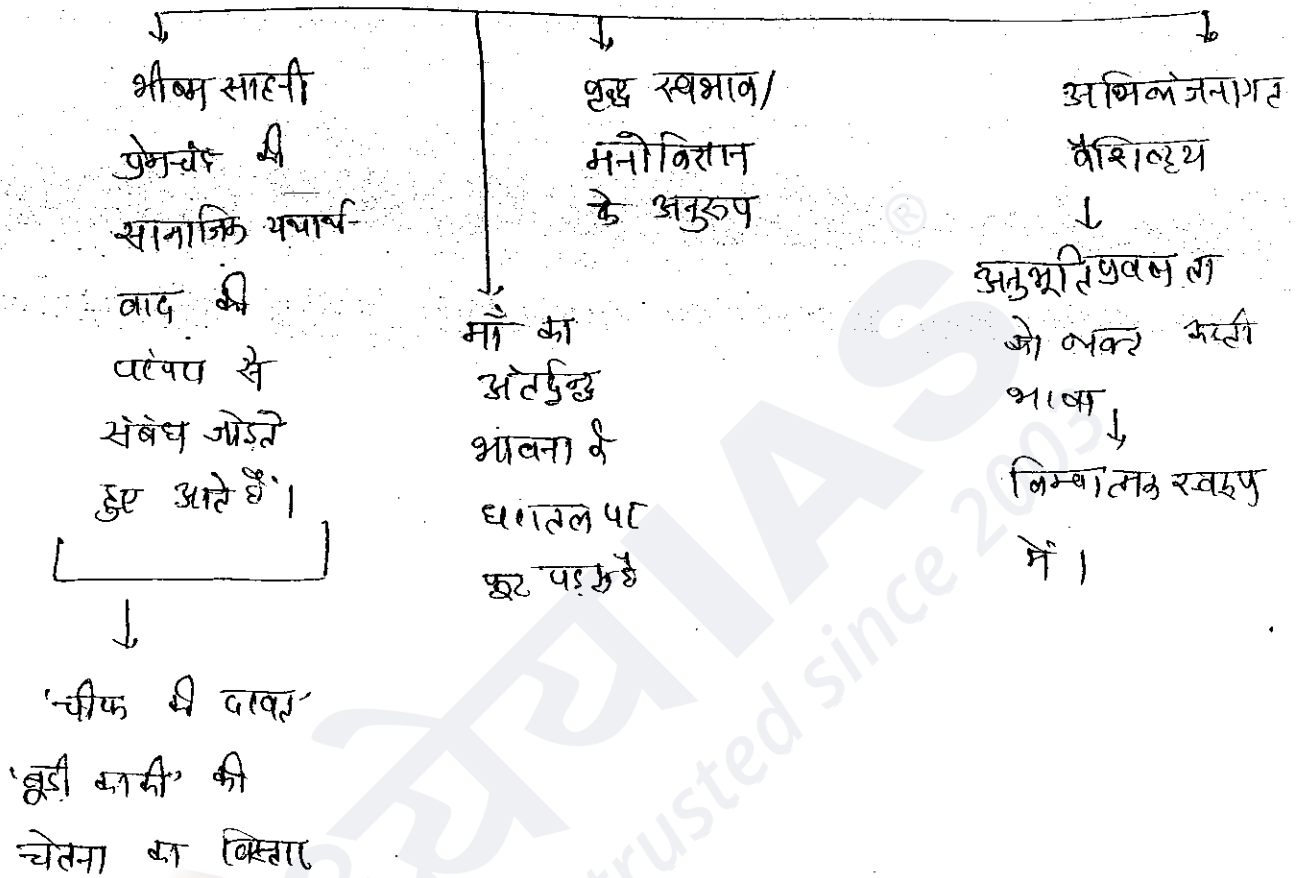 भीष्म साहनी
प्रेमचंद की
सामाजिक यथार्थ-
वाद की
परंपरा से
संबंध जोड़ते
हुए आते हैं।
'चीफ की दावत'
'बूढ़ी काकी' की
चेतना का विस्तार
माँ का
अंतर्द्वन्द्व
भावना के
धरातल पर
फूट पड़ा है
वृद्ध स्वभाव/
मनोविज्ञान
के अनुरूप
अभिव्यंजनागत
वैशिष्ट्य
अनुभूति प्रवणता
को व्यक्त करती
भाषा
बिम्बात्मक स्वरूप
में।
ध्येय IAS ®
trusted since 2003